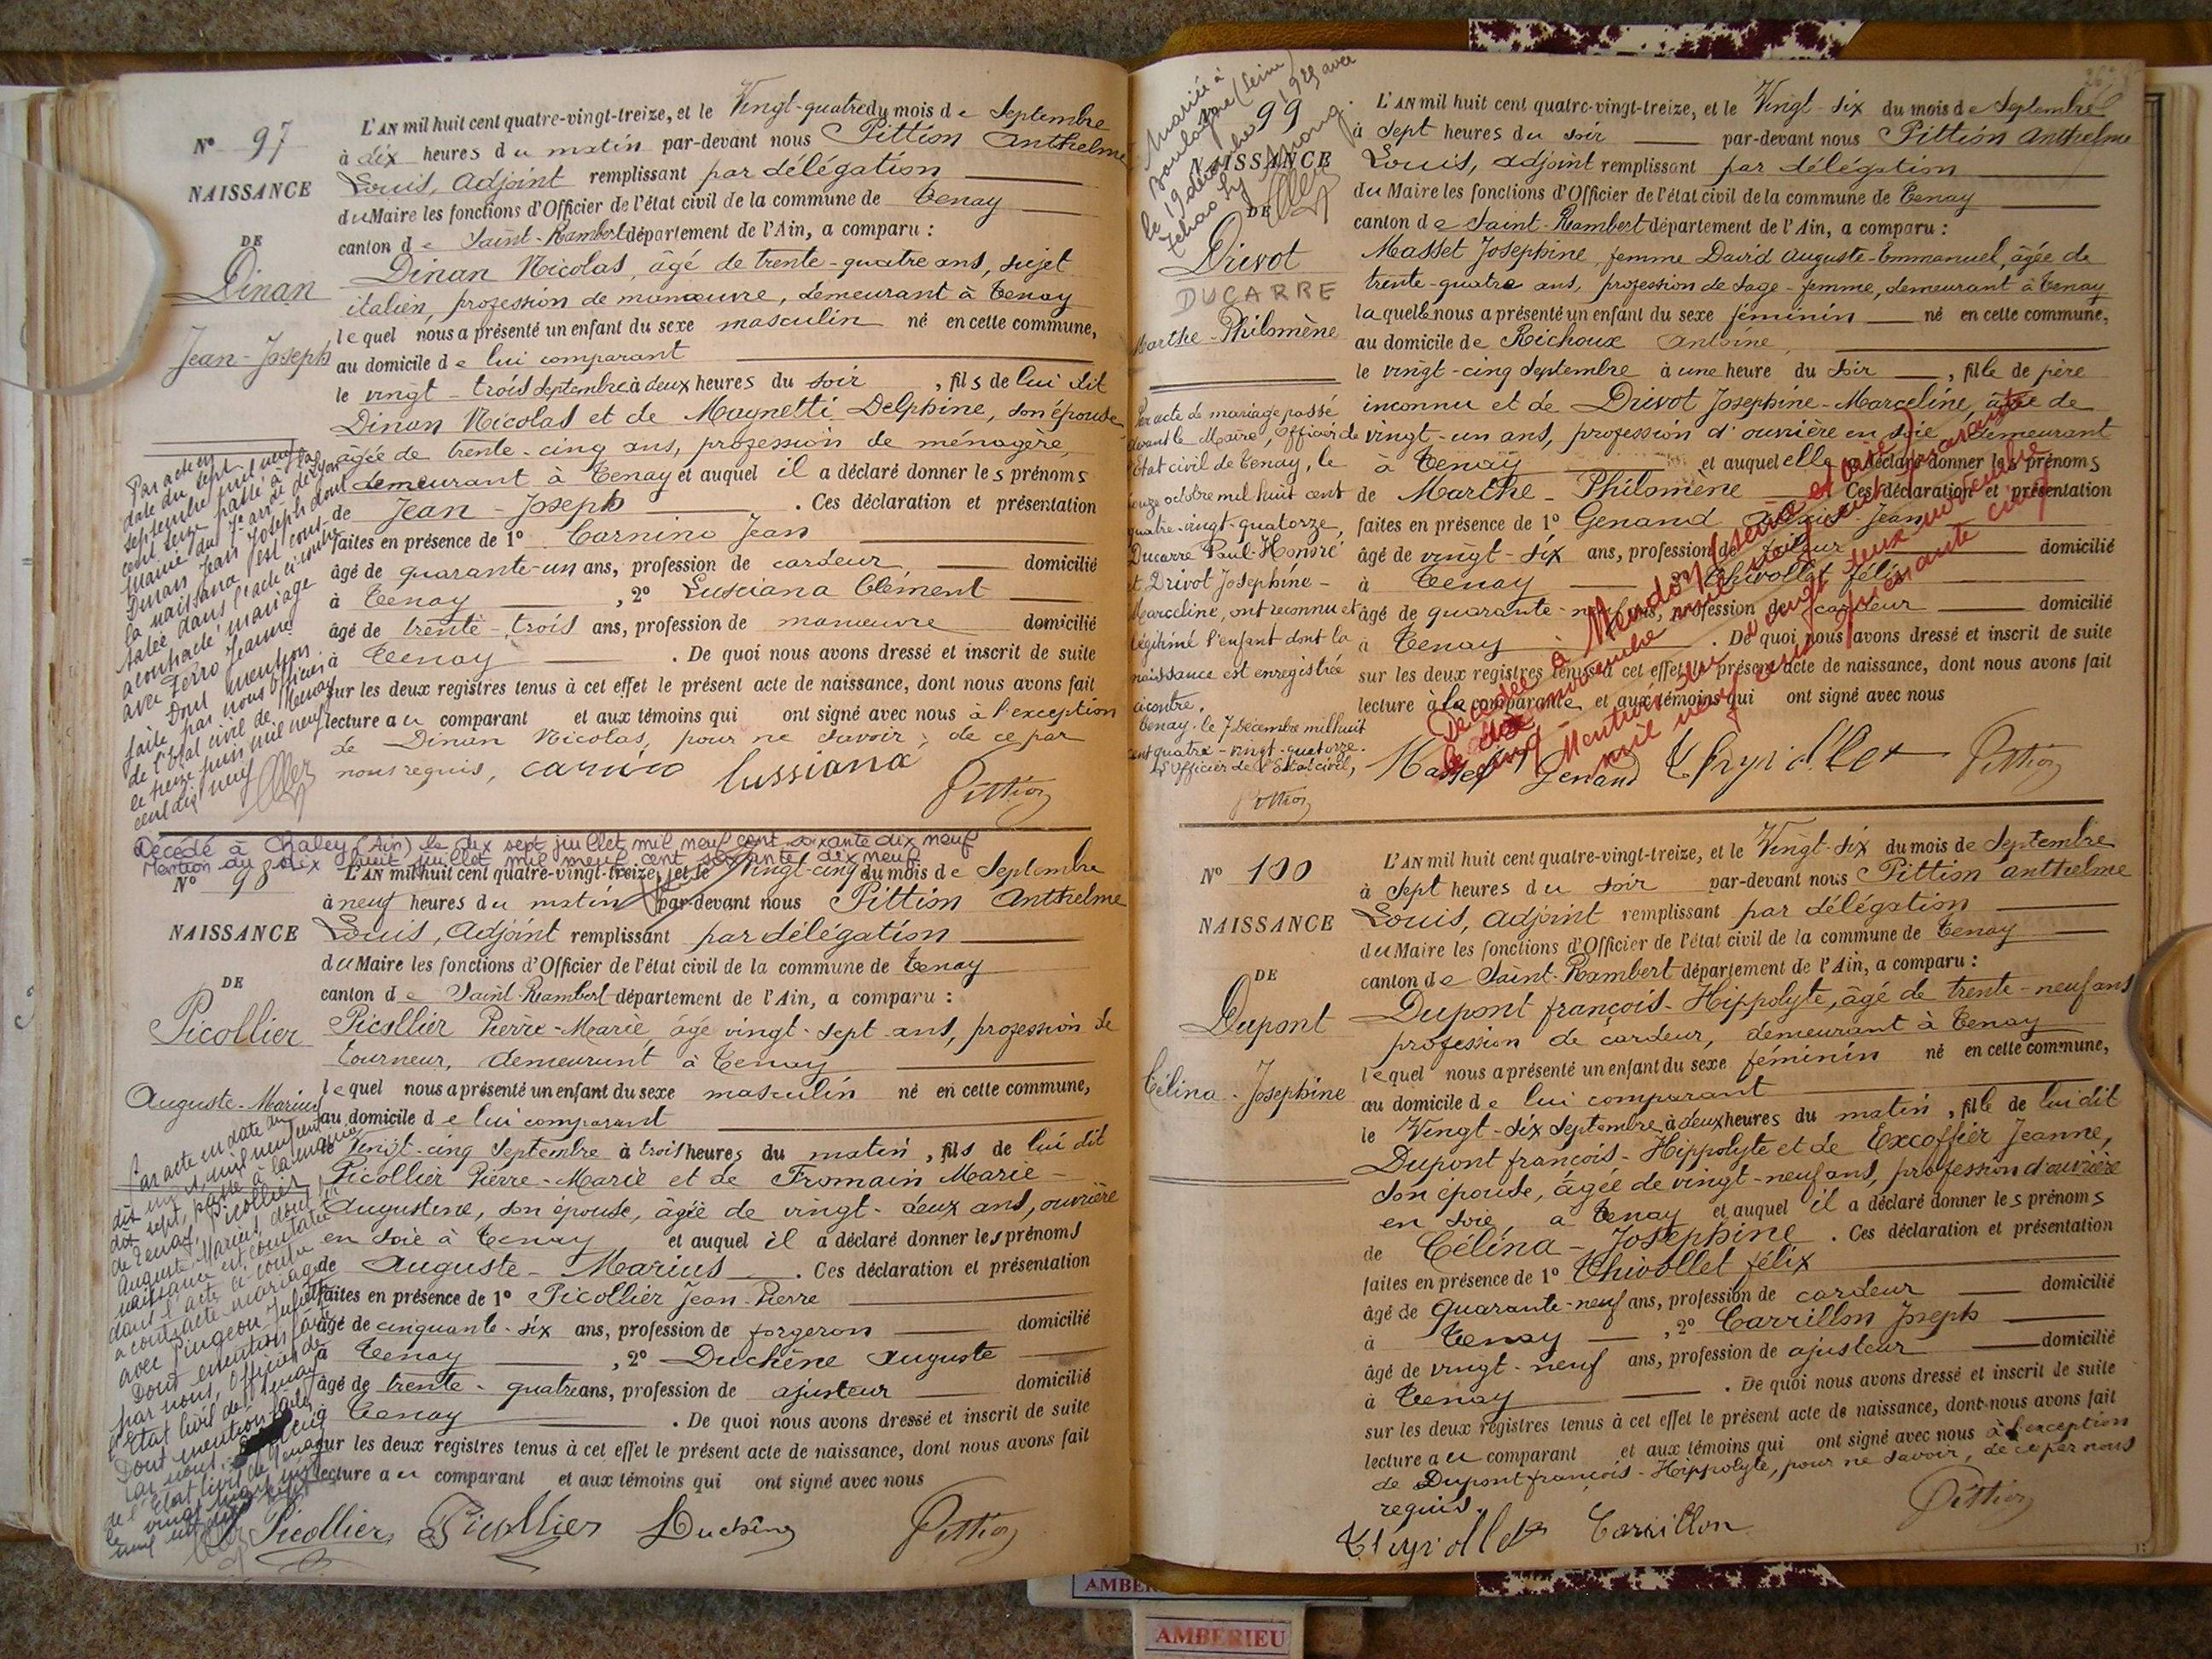 Nº 97
NAISSANCE
DE
Dinan
Jean-Joseph
L'AN mil huit cent quatre-vingt-treize, et le Vingt-quatre du mois de Septembre
à dix heures du matin par-devant nous Pittion Anthelme
Louis, Adjoint remplissant par délégation
du Maire les fonctions d'Officier de l'état civil de la commune de Tenay
canton de Saint-Rambert département de l'Ain, a comparu :
Dinan Nicolas, âgé de trente-quatre ans, sujet
italien, profession de manœuvre, demeurant à Tenay
lequel nous a présenté un enfant du sexe masculin né en cette commune,
au domicile de lui comparant
le vingt-trois Septembre à deux heures du soir, fils de lui dit
Dinan Nicolas et de Magnetti Delphine, son épouse
âgée de trente-cinq ans, profession de ménagère,
demeurant à Tenay et auquel il a déclaré donner les prénoms
de Jean-Joseph. Ces déclaration et présentation
faites en présence de 1º Carnino Jean
âgé de quarante-un ans, profession de cardeur domicilié
à Tenay, 2º Lusciana Clément
âgé de trente-trois ans, profession de manœuvre domicilié
à Tenay. De quoi nous avons dressé et inscrit de suite
sur les deux registres tenus à cet effet le présent acte de naissance, dont nous avons fait
lecture au comparant et aux témoins qui ont signé avec nous à l'exception
de Dinan Nicolas, pour ne savoir, de ce par
nous requis, carnino lussiana
Pittion
Par acte en
date du sept
septembre mil neuf
cent seize passé à la
Mairie du 7e arrt de Lyon
Dinan Jean Joseph dont
la naissance est cons-
tatée dans l'acte ci-contre
a contracté mariage
avec Ferro Jeanne
Dont mention
faite par nous officier
de l'Etat civil de Tenay
le treize juin mil neuf
cent dix neuf
Décédé à Chaley (Ain) le dix sept juillet mil neuf cent soixante dix neuf
Mention du dix huit juillet mil neuf cent soixante dix neuf
Nº 98
NAISSANCE
DE
Picollier
Auguste-Marius
L'AN mil huit cent quatre-vingt-treize, et le Vingt-cinq du mois de Septembre
à neuf heures du matin par-devant nous Pittion Anthelme
Louis, Adjoint remplissant par délégation
du Maire les fonctions d'Officier de l'état civil de la commune de Tenay
canton de Saint-Rambert département de l'Ain, a comparu :
Picollier Pierre-Marie, âgé vingt-sept ans, profession de
tourneur, demeurant à Tenay
lequel nous a présenté un enfant du sexe masculin né en cette commune,
au domicile de lui comparant
le Vingt-cinq Septembre à trois heures du matin, fils de lui dit
Picollier Pierre-Marie et de Fromain Marie-
Augustine, son épouse, âgée de vingt-deux ans, ouvrière
en soie à Tenay et auquel il a déclaré donner les prénoms
de Auguste-Marius. Ces déclaration et présentation
faites en présence de 1º Picollier Jean-Pierre
âgé de cinquante-six ans, profession de forgeron domicilié
à Tenay, 2º Duchêne Auguste
âgé de trente-quatre ans, profession de ajusteur domicilié
à Tenay. De quoi nous avons dressé et inscrit de suite
sur les deux registres tenus à cet effet le présent acte de naissance, dont nous avons fait
lecture au comparant et aux témoins qui ont signé avec nous
Picollier Picollier Duchêne Pittion
Par acte en date du
dix mil neuf cent
dix sept, passé à la mairie
de Tenay, Picollier
Auguste Marius, dont la
naissance est constatée
dans l'acte ci-contre
a contracté mariage
avec Pingeon Juliette
Dont mention faite
par nous, Officier de
l'Etat Civil de Tenay
Dont mention faite
par nous
de l'Etat civil de Tenay
Nº 99
NAISSANCE
DE
Drivot
DUCARRE
Marthe-Philomène
Mariée à
Boulogne (Seine)
le 19 décembre 1925 avec
L'AN mil huit cent quatre-vingt-treize, et le Vingt-six du mois de Septembre
à sept heures du soir par-devant nous Pittion Anthelme
Louis, adjoint remplissant par délégation
du Maire les fonctions d'Officier de l'état civil de la commune de Tenay
canton de Saint-Rambert département de l'Ain, a comparu :
Masset Josephine, femme David Auguste-Emmanuel, âgée de
trente-quatre ans, profession de sage-femme, demeurant à Tenay
laquelle nous a présenté un enfant du sexe féminin né en cette commune,
au domicile de Richoux Antoine,
le vingt-cinq Septembre à une heure du soir, fille de père
inconnu et de Drivot Josephine-Marceline, âgée de
vingt-un ans, profession d'ouvrière en soie, demeurant
à Tenay et auquel elle a déclaré donner les prénoms
de Marthe-Philomène. Ces déclaration et présentation
faites en présence de 1º Genand Alexis-Jean
âgé de vingt-six ans, profession de domicilié
à Tenay Thivollet félix
âgé de quarante-neuf ans, profession de cardeur domicilié
à Tenay. De quoi nous avons dressé et inscrit de suite
sur les deux registres tenus à cet effet le présent acte de naissance, dont nous avons fait
lecture à la comparante et aux témoins qui ont signé avec nous
Masset Genand Pittion
Décédée à Meudon (Seine et Oise)
le dix novembre mil neuf cent soixante
cinq
Mention du vingt deux novembre
mil neuf cent soixante cinq
Par acte de mariage passé
devant le Maire, Officier de
l'Etat civil de Tenay, le
onze octobre mil huit cent
quatre-vingt-quatorze,
Ducarre Paul-Honoré
et Drivot Josephine-
Marceline, ont reconnu et
légitimé l'enfant dont la
naissance est enregistrée
ci contre.
Tenay, le 7 Décembre mil huit
cent quatre-vingt-quatorze.
L'Officier de l'Etat civil,
Pittion
Nº 100
NAISSANCE
DE
Dupont
Célina-Josephine
L'AN mil huit cent quatre-vingt-treize, et le Vingt-six du mois de Septembre
à sept heures du soir par-devant nous Pittion Anthelme
Louis, adjoint remplissant par délégation
du Maire les fonctions d'Officier de l'état civil de la commune de Tenay
canton de Saint-Rambert département de l'Ain, a comparu :
Dupont françois-Hippolyte, âgé de trente-neuf ans
profession de cardeur, demeurant à Tenay
lequel nous a présenté un enfant du sexe féminin né en cette commune,
au domicile de lui comparant
le Vingt-six Septembre à deux heures du matin, fille de lui dit
Dupont françois-Hippolyte et de Excoffier Jeanne,
son épouse, âgée de vingt-neuf ans, profession d'ouvrière
en soie, à Tenay et auquel il a déclaré donner les prénoms
de Célina-Josephine. Ces déclaration et présentation
faites en présence de 1º Thivollet félix
âgé de Quarante-neuf ans, profession de cardeur domicilié
à Tenay, 2º Carrillon Joseph
âgé de vingt-neuf ans, profession de ajusteur domicilié
à Tenay. De quoi nous avons dressé et inscrit de suite
sur les deux registres tenus à cet effet le présent acte de naissance, dont nous avons fait
lecture au comparant et aux témoins qui ont signé avec nous à l'exception
de Dupont françois-Hippolyte, pour ne savoir, de ce par nous
requis.
Carrillon Pittion
AMBERIEU